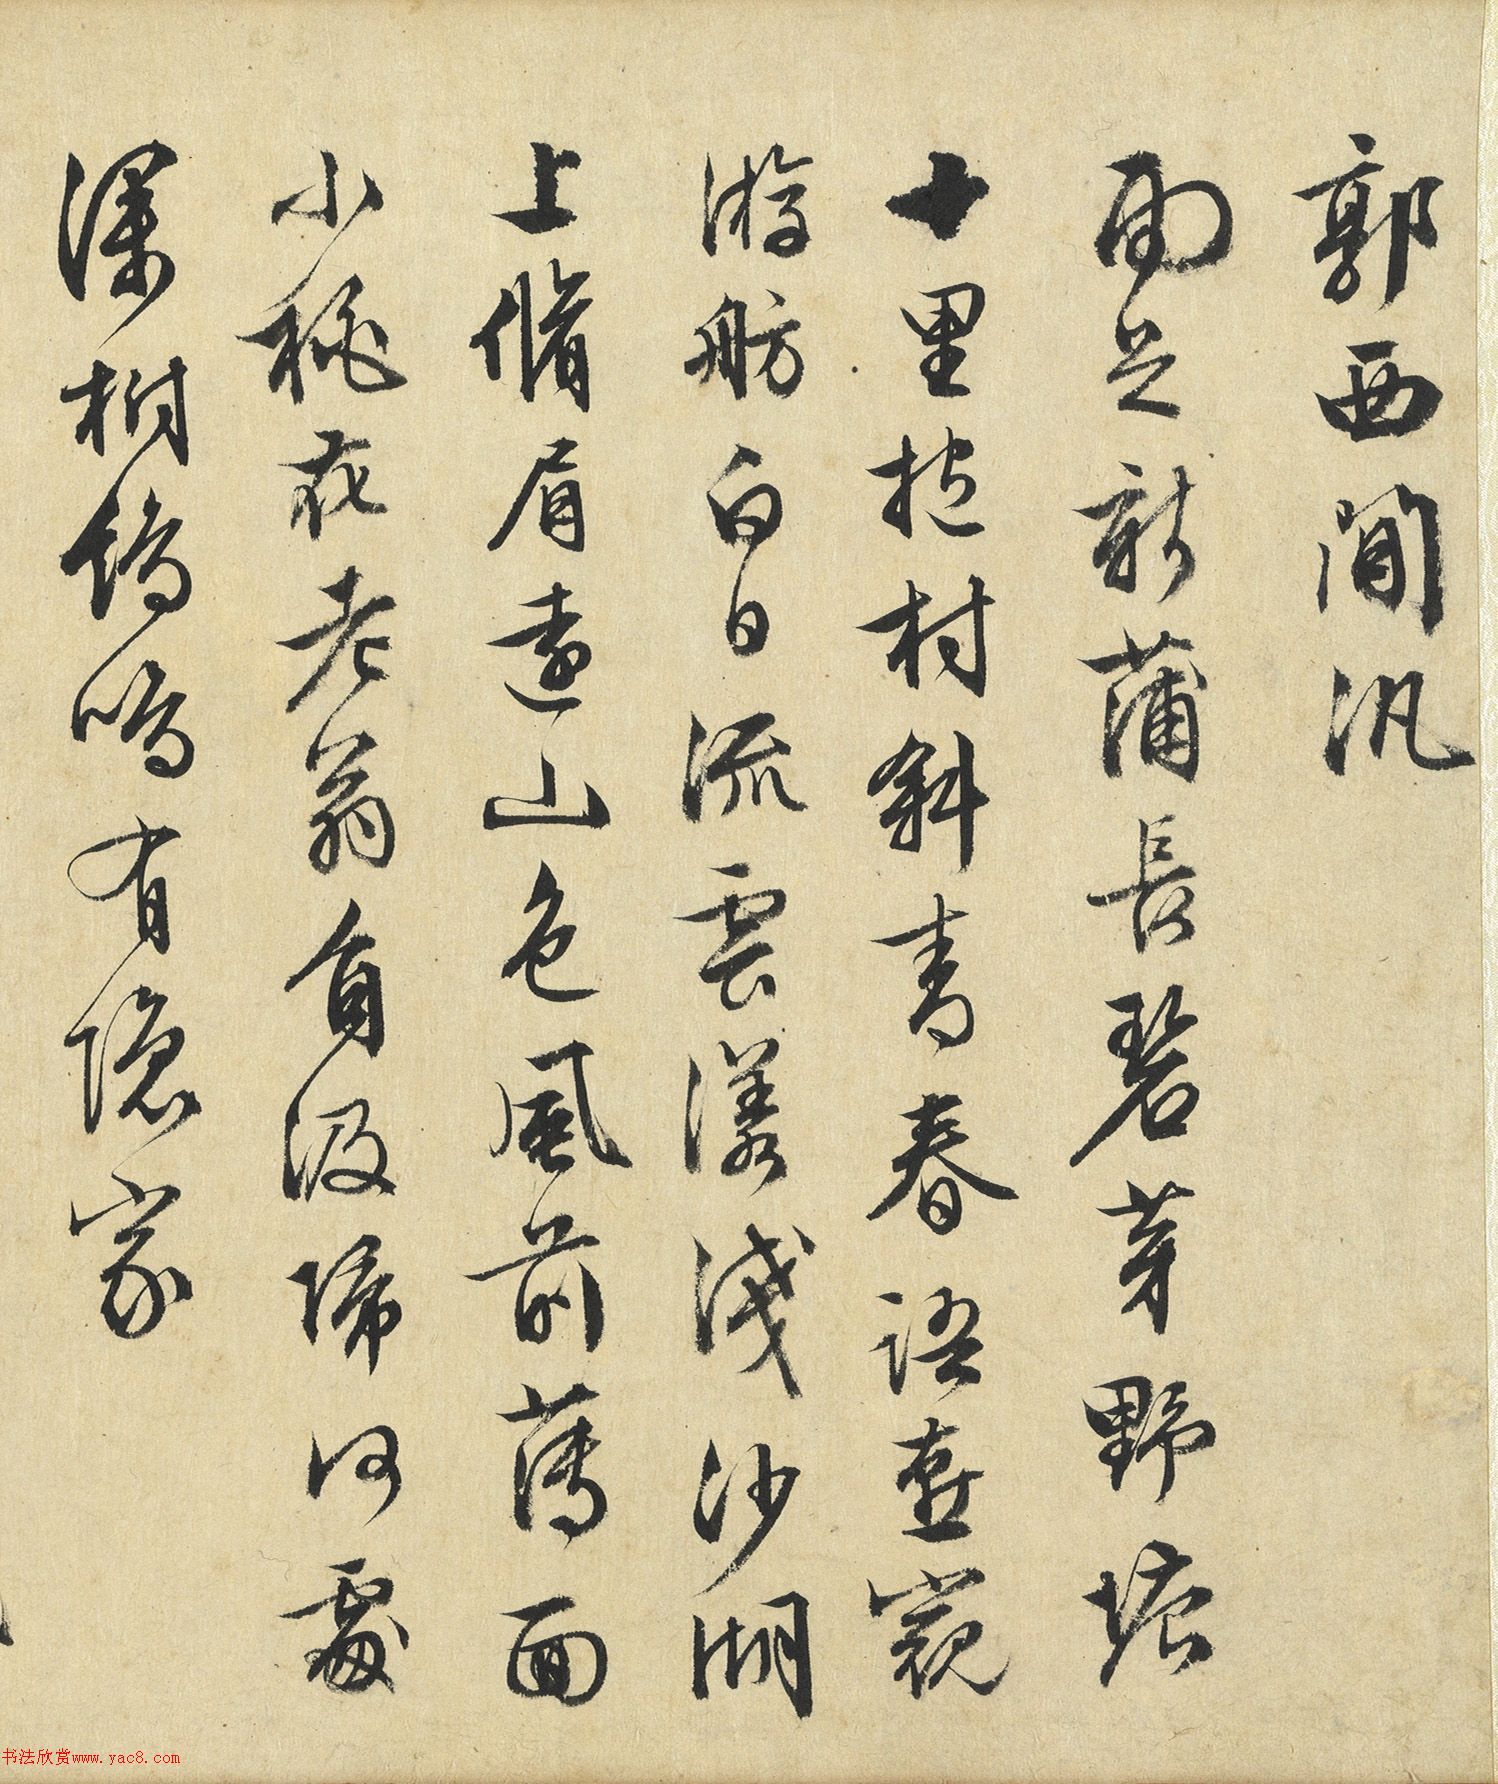 郭西閒汎
雨足新蒲長碧芽野塘
十里抱村斜青春語燕窺
游舫白日流雲漾淺沙湖
上脩眉遠山色風前薄面
小桃花老翁負汲歸何處
深樹鷄鳴有隱家
书法欣赏www.yac8.com